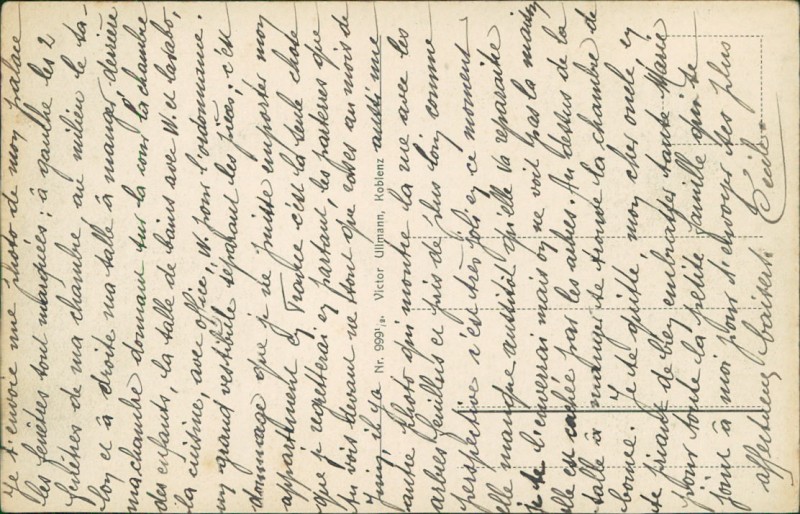 Je t'envoie une photo de mon palace
les fenêtres sont marquées : à gauche les 2
fenêtres de ma chambre, au milieu le sa-
lon et à droite ma salle à manger derrière
ma chambre donnant sur la cour la chambre
des enfants, la salle de bains avec W. et lavabo,
la cuisine, avec office, W. pour l'ordonnance.
un grand vestibule séparant les pièces. c'est
dommage que je ne puisse emporter mon
appartement en France c'est la seule chose
que je regretterai en partant, les parterres que
tu vois devant ne sont que roses au mois de
Juin, il y a aussi une
autre photo qui montre la rue avec les
arbres feuillus et pris de plus loin comme
perspective c'est très joli en ce moment
elle manque aussitôt qu'elle va reparaître
je te l'enverrai mais on ne voit pas la maison
elle est cachée par les arbres. Au dessus de la
salle à manger se trouve la chambre de
bonne. Je te quitte, mon cher oncle en
te priant de bien embrasser tante Marie
pour toute la petite famille qui se
joint à moi pour t'envoyer ses plus
affectueux baisers. Cécile.
Nr. 999¹/₈. Victor Ullmann, Koblenz